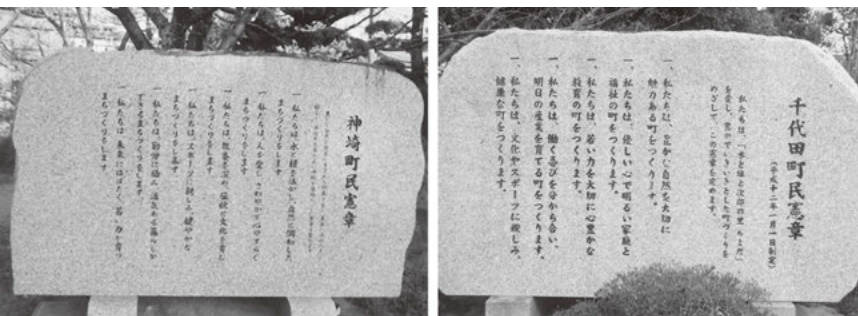 神埼町民憲章
一、私たちは、水と緑を活かし、自然に調和した
まちづくりをします
一、私たちは、人を愛し、さわやかで心やすらぐ
まちづくりをします
一、私たちは、教養を深め、伝統と文化を育む
まちづくりをします
一、私たちは、スポーツに親しみ、健やかな
まちづくりをします
一、私たちは、勤労に励み、活力ある暮らしが
できるまちづくりをします
一、私たちは、未来にはばたく、若い力が育つ
まちづくりをします
千代田町民憲章
(平成十二年一月一日制定)
私たちは、「水と緑と次郎の里 ちよだ」
を愛し、豊かでいきいきとした町づくりを
めざして、この憲章を定めます。
一、私たちは、豊かな自然を大切に
魅力ある町をつくります。
一、私たちは、優しい心で明るい家庭と
福祉の町をつくります。
一、私たちは、若い力を大切に心豊かな
教育の町をつくります。
一、私たちは、働く喜びを分かち合い、
明日の産業を育てる町をつくります。
一、私たちは、文化やスポーツに親しみ、
健康な町をつくります。